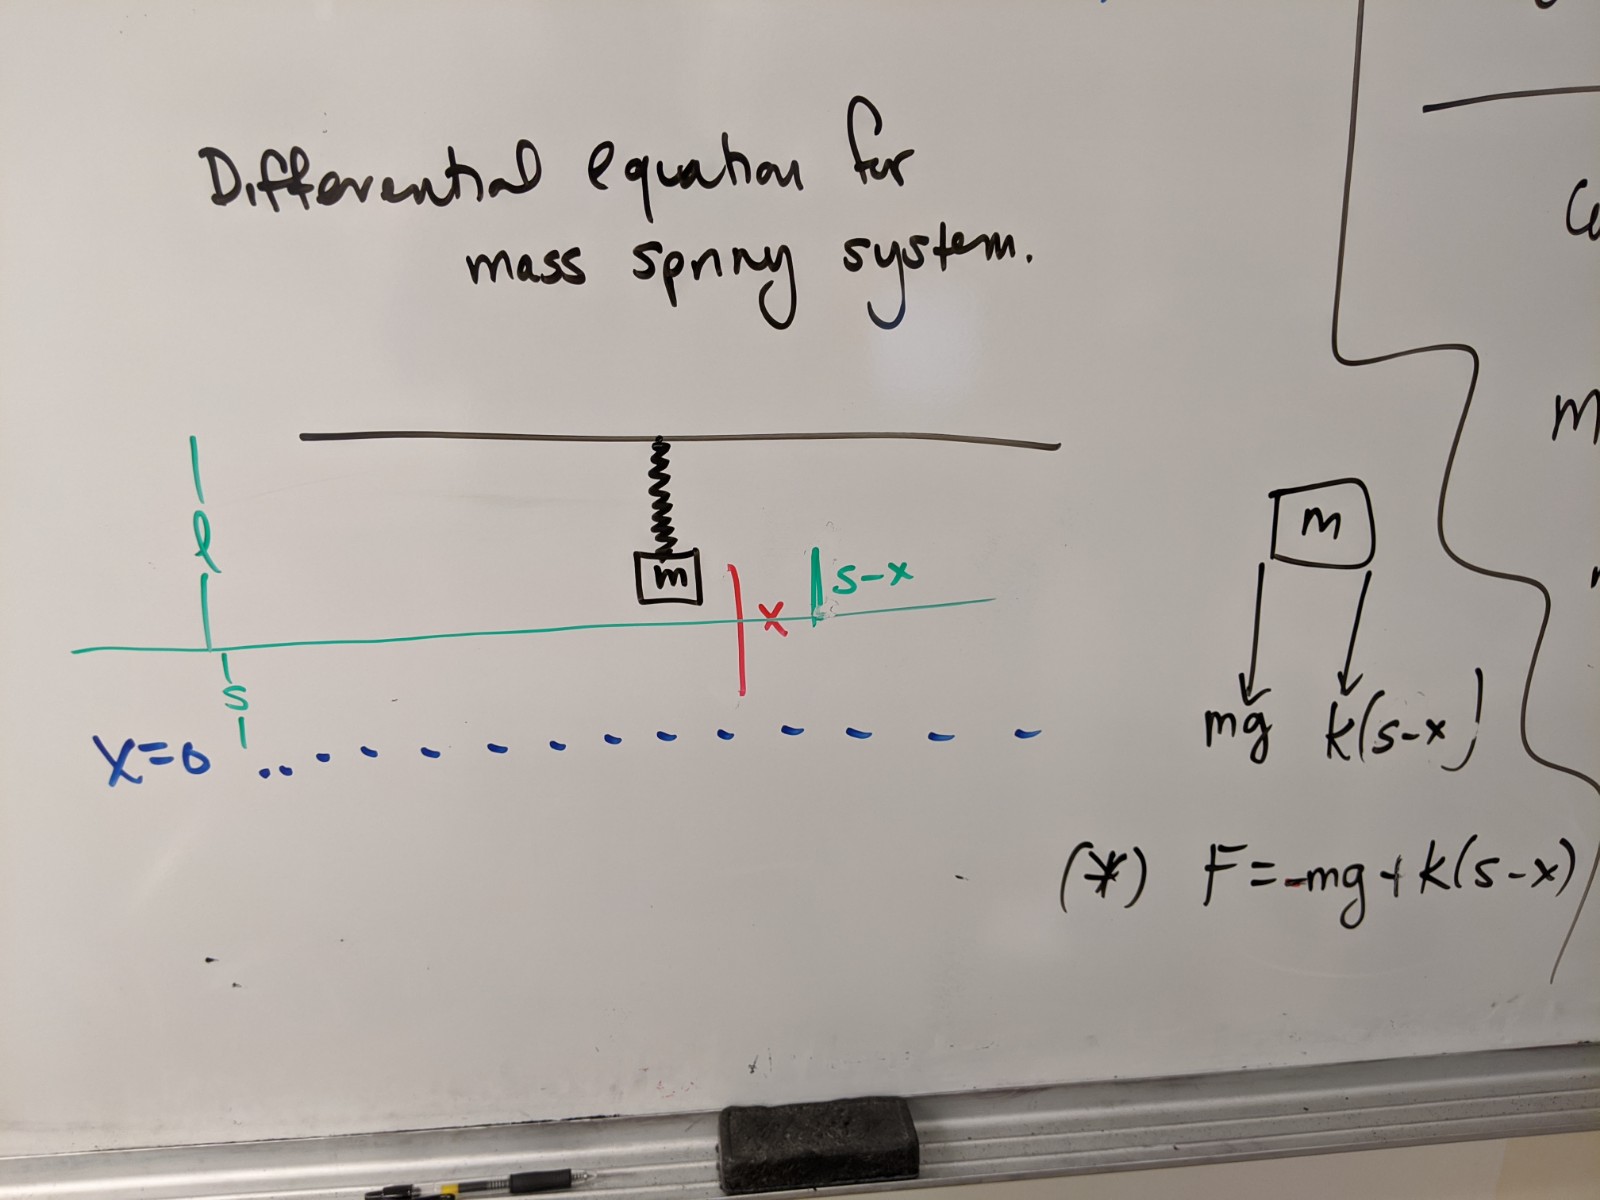 Differential equation for
mass spring system.
l
m
s-x
x
s
x=0
m
mg k(s-x)
(*) F=-mg+k(s-x)
m